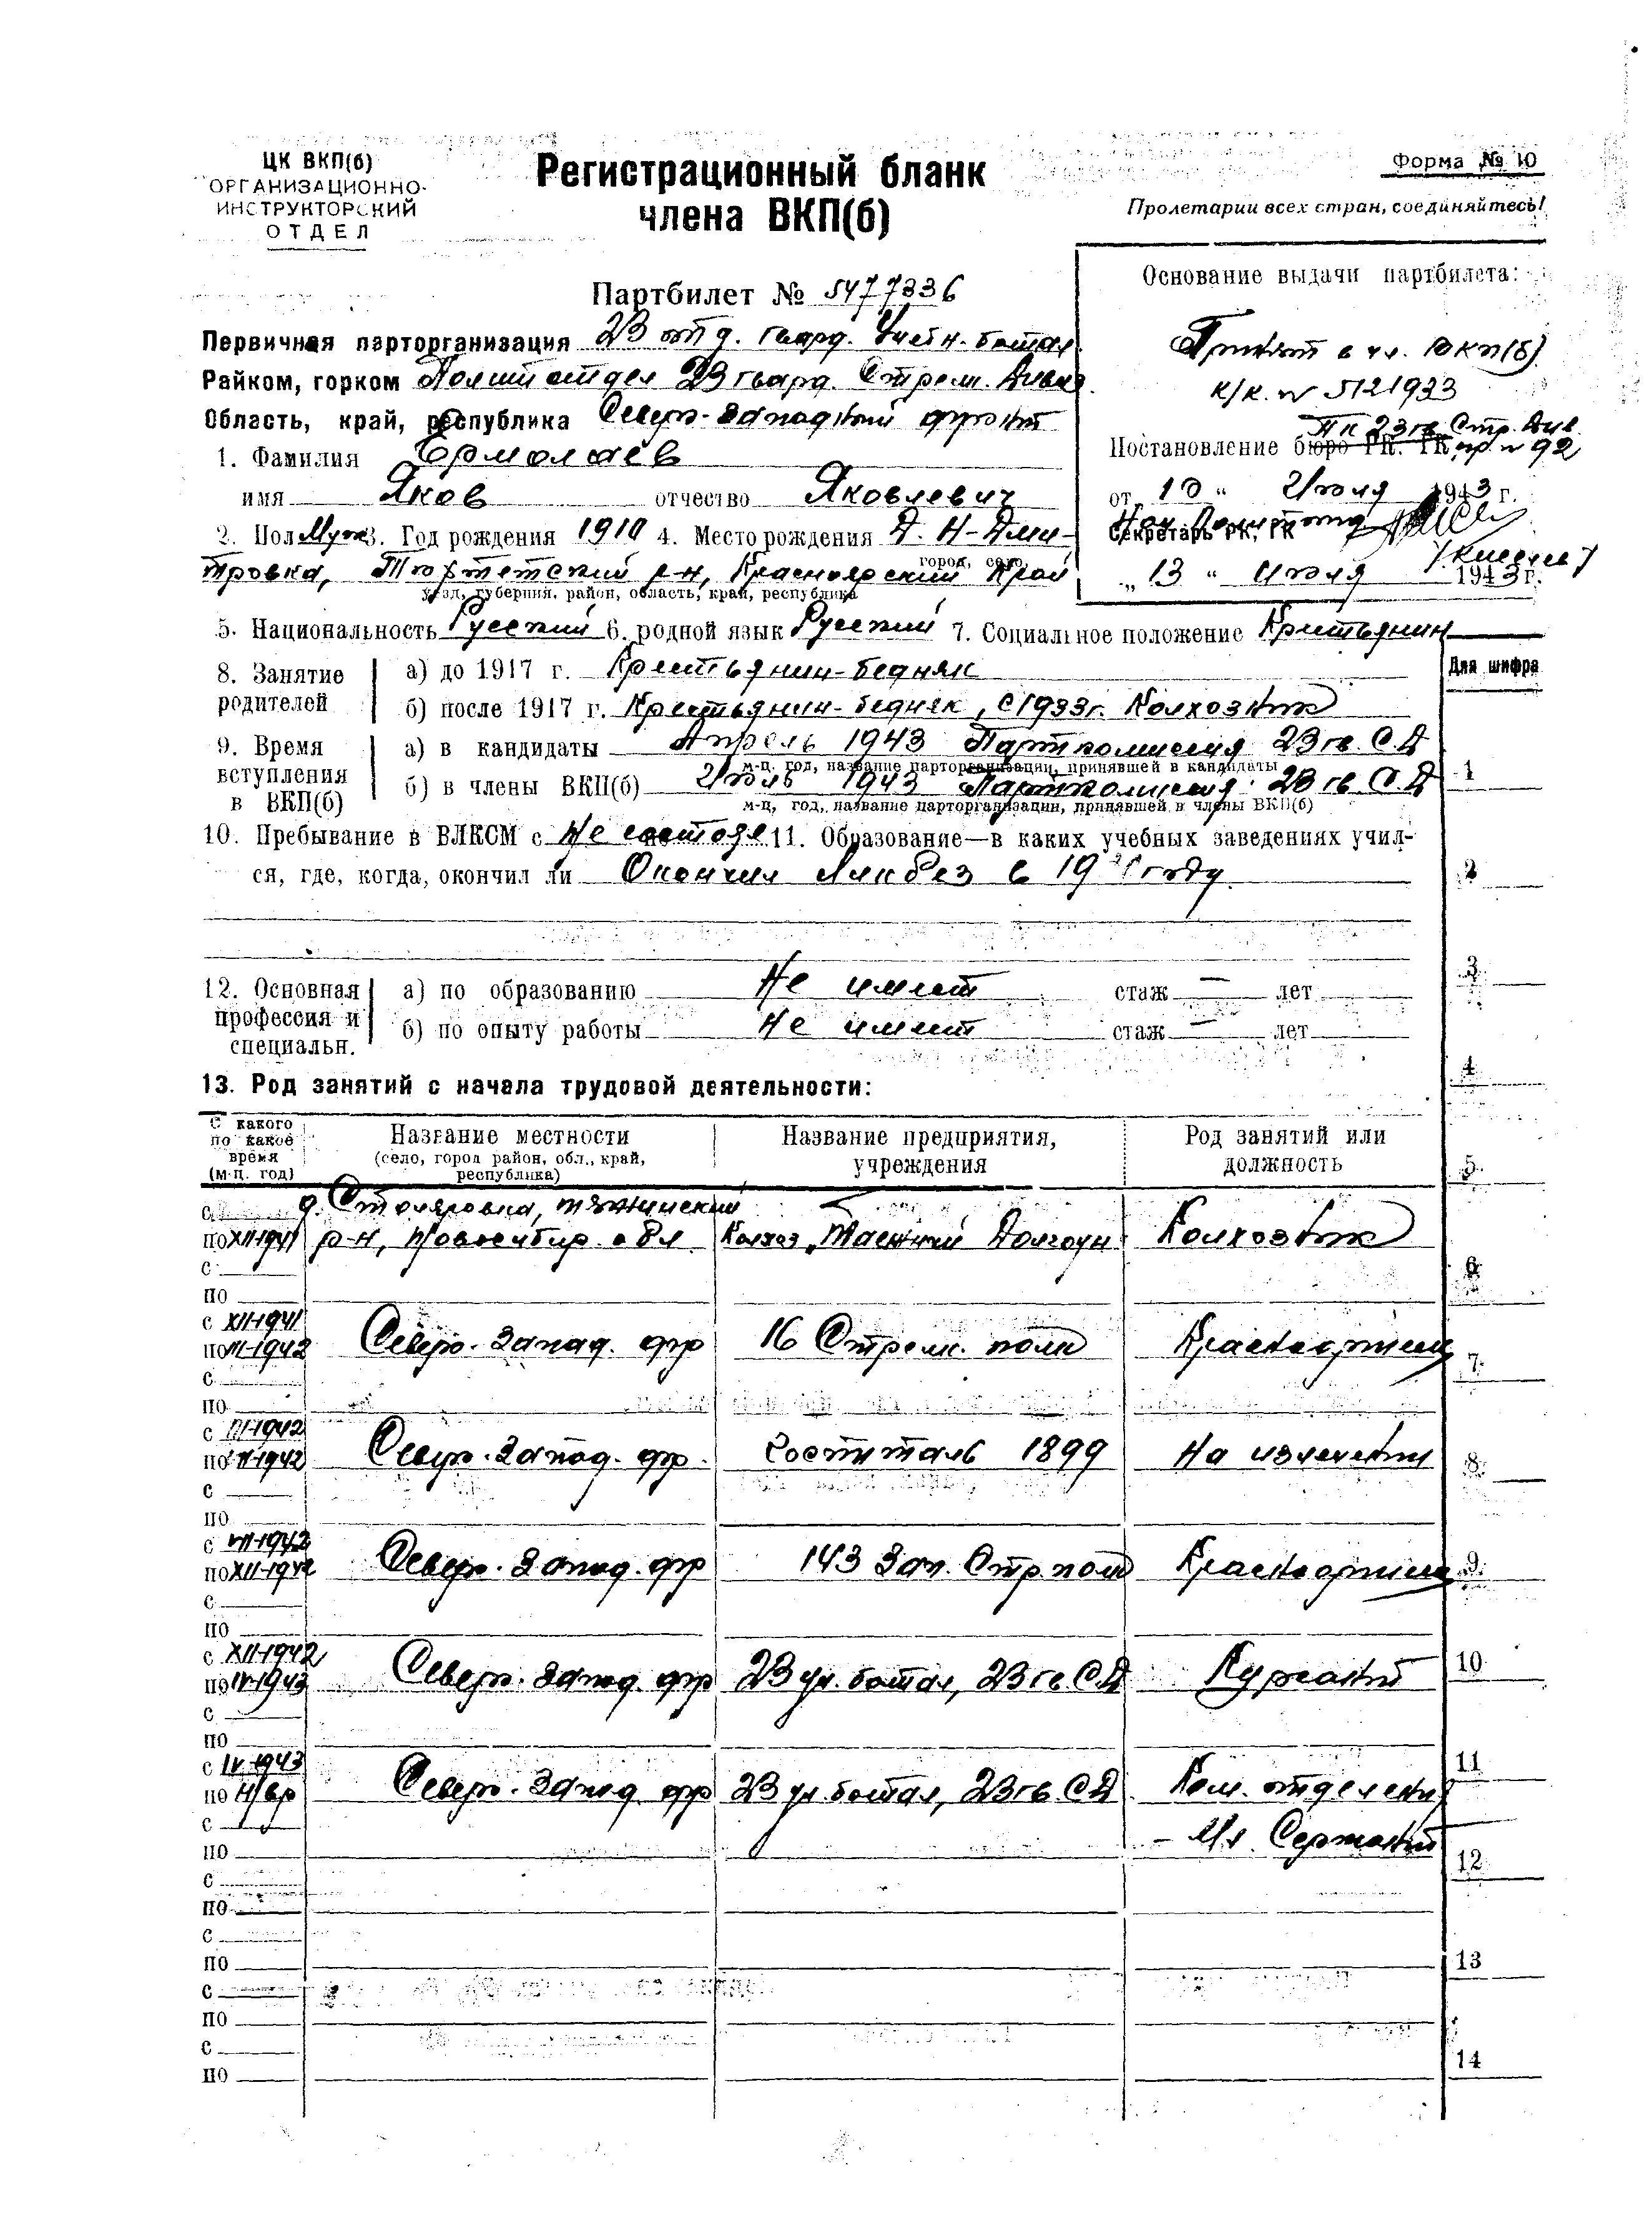 ЦК ВКП(б)
ОРГАНИЗАЦИОННО-
ИНСТРУКТОРСКИЙ
ОТДЕЛ
Регистрационный бланк
члена ВКП(б)
Форма № 10
Пролетарии всех стран, соединяйтесь!
Партбилет № 5477336
Первичная парторганизация 23 отд. гвард. Учебн. батал.
Райком, горком Политотдел 23 гвард. Стрелк. Дивиз.
Область, край, республика Северо-Западный фронт
1. Фамилия Ермолаев
имя Яков отчество Яковлевич
2. Пол Муж 3. Год рождения 1910 4. Место рождения Д. Н-Дми-
город, село,
тровка, Тюхтетский р-н, Красноярский Край
уезд, губерния, район, область, край, республика
Основание выдачи партбилета:
Принят в чл. ВКП(б)
к/к. № 5121933
ПК 23 гв. Стр. Див.
Постановление бюро РК, ГК пр. № 92
от 10 " Июля 1943 г.
Нач. Политотд
Секретарь РК, ГК
/Киселев/
„ 13 " Июля 1943 г.
5. Национальность Русский 6. родной язык Русский 7. Социальное положение Крестьянин
8. Занятие родителей
а) до 1917 г. Крестьянин-бедняк
б) после 1917 г. Крестьянин-бедняк, с 1933 г. Колхозник
9. Время вступления в ВКП(б)
а) в кандидаты Апрель 1943 Парткомиссия 23 гв. С.Д
м-ц, год, название парторганизации, принявшей в кандидаты
б) в члены ВКП(б) Июль 1943 Парткомиссия 23 гв. С.Д
м-ц, год, название парторганизации, принявшей в члены ВКП(б)
10. Пребывание в ВЛКСМ с Не состоял 11. Образование—в каких учебных заведениях учил-
ся, где, когда, окончил ли Окончил Ликбез в году
12. Основная профессия и специальн.
а) по образованию Не имеет стаж — лет
б) по опыту работы Не имеет стаж — лет
13. Род занятий с начала трудовой деятельности:
С какого по какое время (м-ц, год)
Название местности
(село, город район, обл., край, республика)
Название предприятия, учреждения
Род занятий или должность
Для шифра
с д. Столяровка, Тяжинский
по XII-1941 р-н, Новосибир. обл. Колхоз Колхозник
с
по
с XII-1941
по III-1942 Северо-Запад. фр 16 Стрелк. полк Красноармеец
с
по
с III-1942
по VII-1942 Северо-Запад. фр. Госпиталь 1899 На излечении
с
по
с VII-1942
по XII-1942 Северо-Запад. фр 143 Зап. Стр. полк Красноармеец
с
по
с XII-1942
по IV-1943 Северо-Запад. фр 23 уч. батал, 23 гв. С.Д Курсант
с
по
с IV-1943
по н/вр Северо-Запад. фр 23 уч. батал, 23 гв. С.Д Ком. отделения
с
по - Мл. Сержант
с
по
с
по
с
по
с
по
1
2
3
4
5
6
7
8
9
10
11
12
13
14